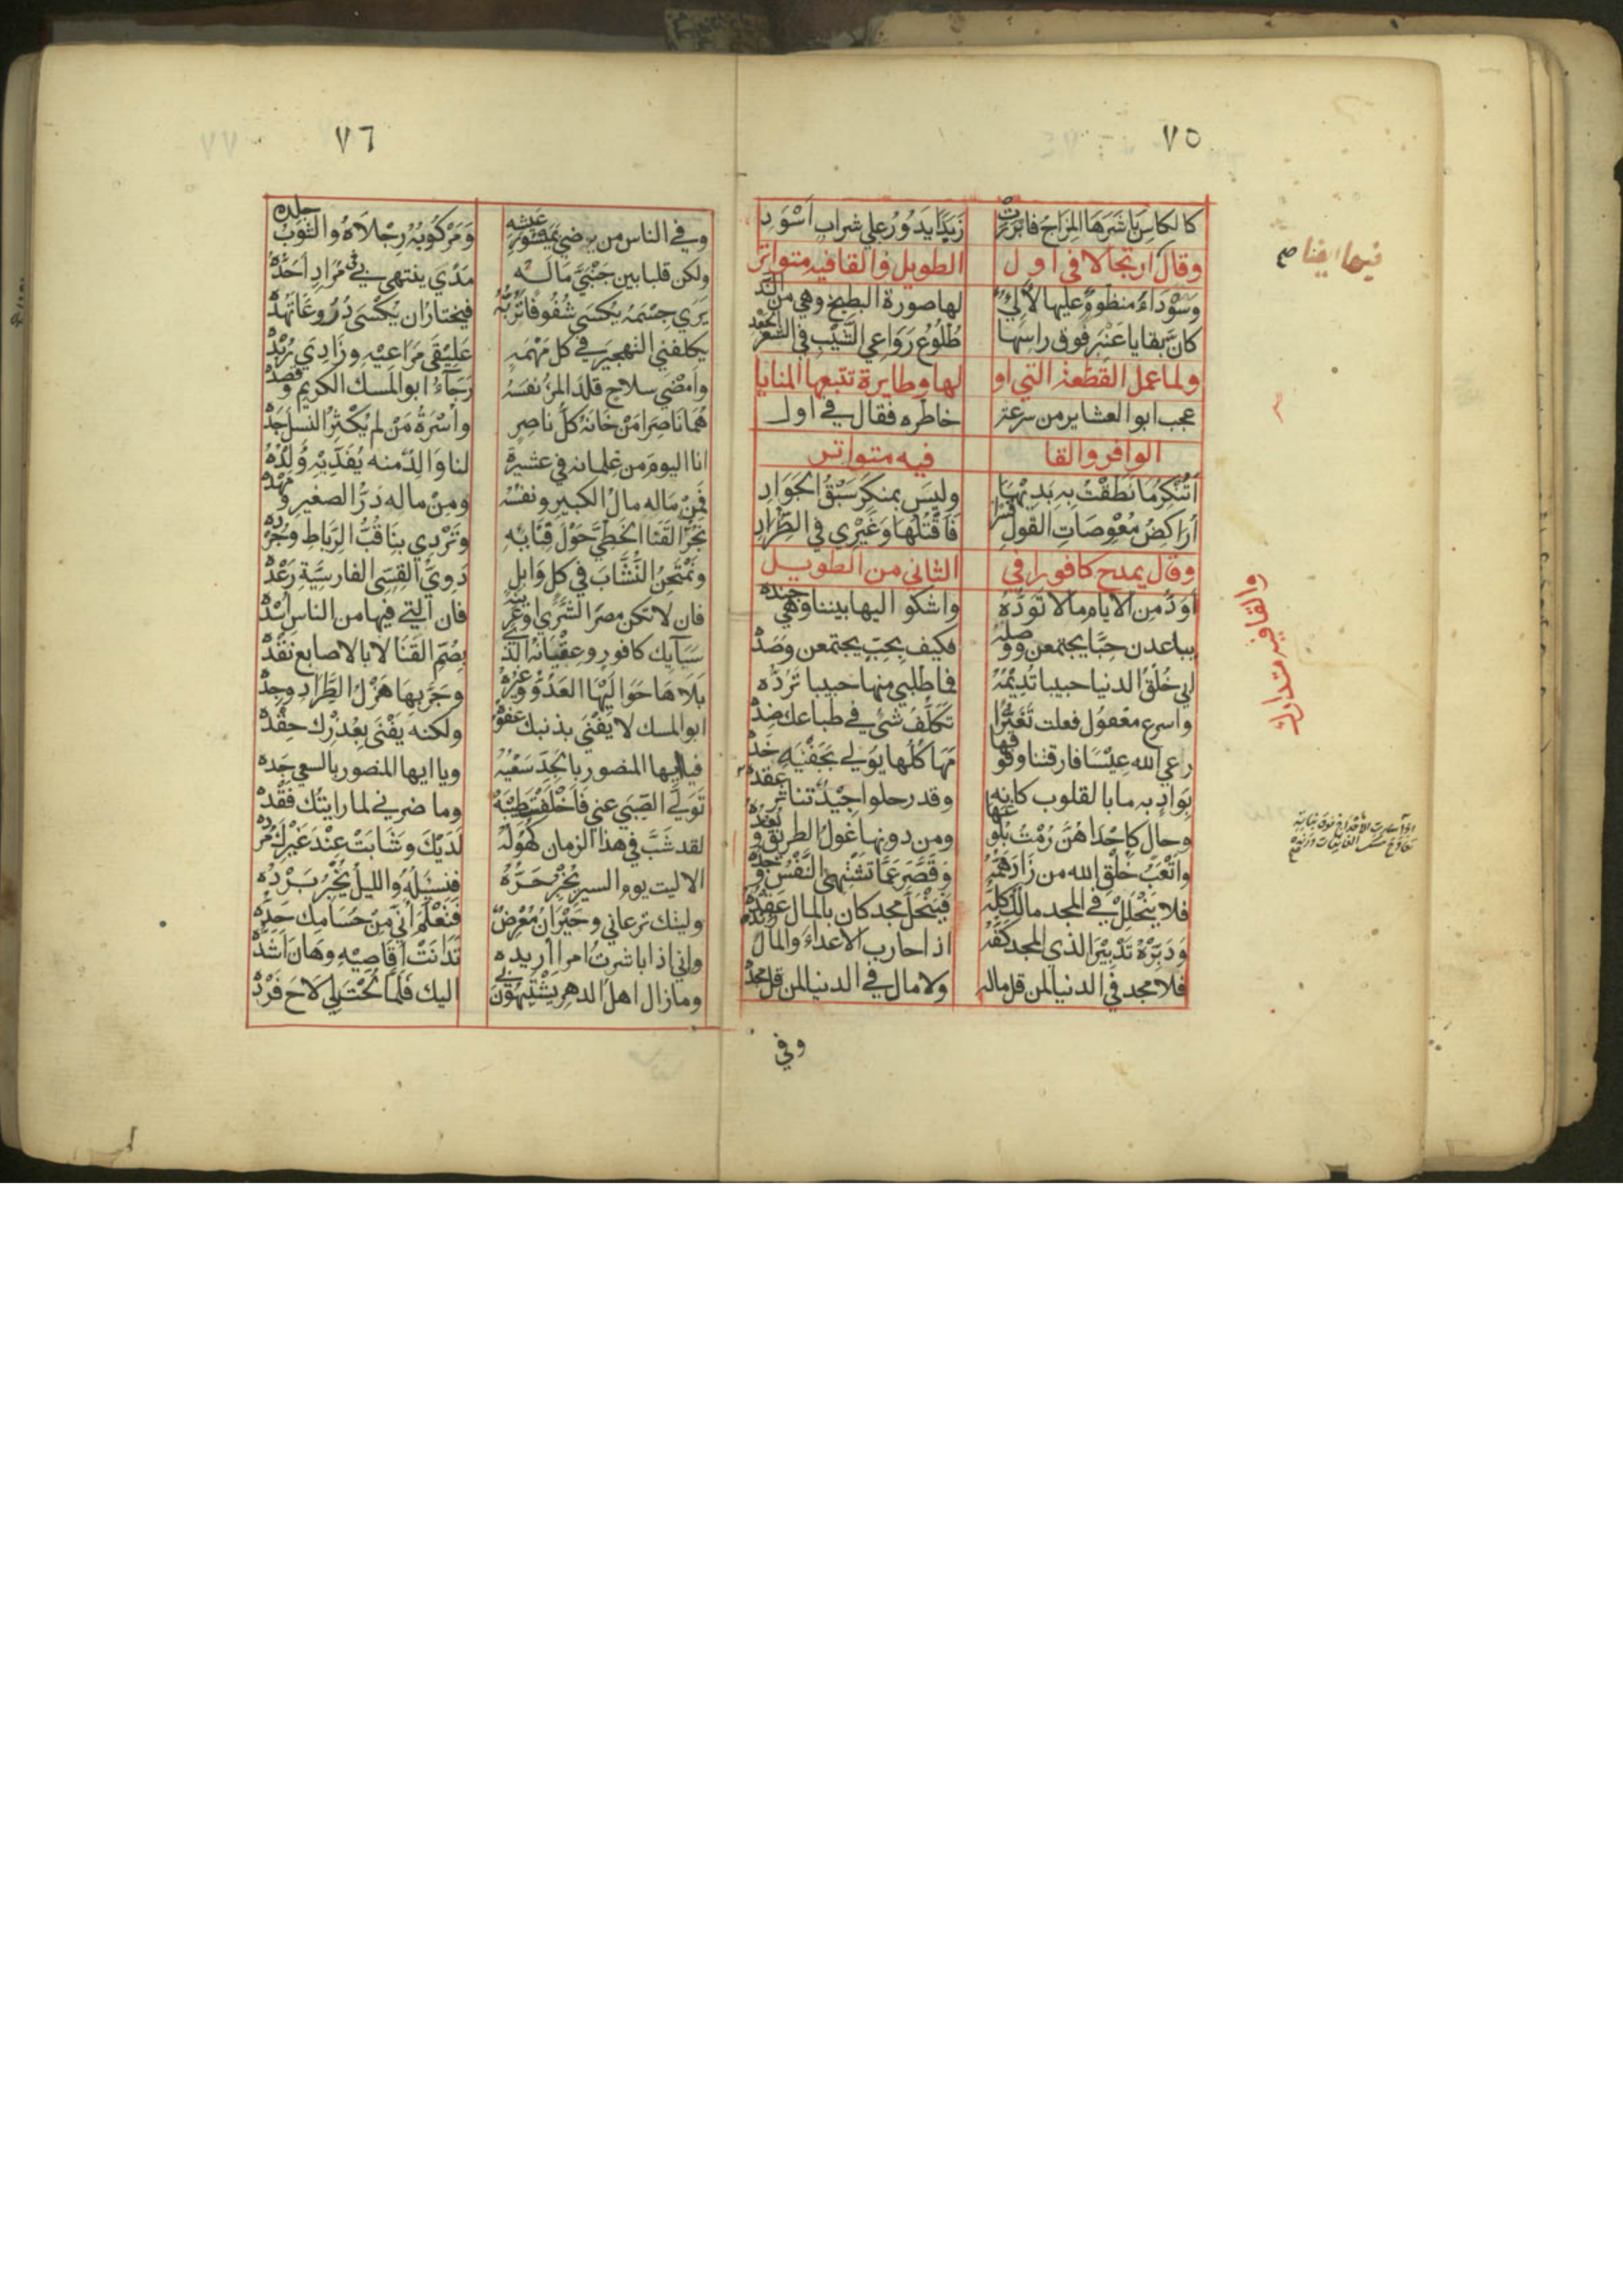 ٧٥
كالكاس باشرها المزاج فابرزت زبدا يدور علي شراب اسود
وقال ارتجالا في اول الطويل والقافيه متواتر
فيها ايضا صح
وسوداء منظوم عليها لآلئ لها صورة البطيخ وهي من الند
كان بقايا عنبر فوق راسها طلوع رواعي الشيب في الشعر الجعد
ولما عمل القطعة التي او لها وطايرة تتبعها المنايا
عجب ابو العشاير من سرعة خاطره فقال في اول
الوافر والقا فيه متواتر
اتنكر ما نطقت به بديها وليس بمنكر سبق الجواد
اراكض معوصات القول قسرا فاقتلها وغيري في الطراد
وقال يمدح كافورا في الثاني من الطويل
والقافيه متدارك
اود من الايام مالا توده واشكوا اليها بيننا وهي جنده
يباعدن حبا يجتمعن ووصله فكيف بحب يجتمعن وصده
ابي خلق الدنيا حبيبا تديمه فما طلبي منها حبيبا ترده
واسرع مفعول فعلت تغيرا تكلف شئ في طباعك ضده
رعي الله عيسا فارقتنا وفوقها مها كلها يولي بجفنيه خده
بواد به ما بالقلوب كانه وقد رحلوا جيد تناثر عقده
وحال كاحداهن رمت بلوغها ومن دونها غول الطريق وبعده
واتعب خلق الله من زاد همه وقصر عما تشتهي النفس وجده
فلا ينحلل في المجد مالك كله فينحل مجد كان بالمال عقده
ودبره تدبير الذي المجد كفه اذا حارب الاعداء والمال زنده
فلا مجد في الدنيا لمن قل ماله ولا مال في الدنيا لمن قل مجده
وفي
٧٦
وفي الناس من يرضي بميسور عيشه ومركوبه رجلاه والثوب جلده
ولكن قلبا بين جنبي ماله مدي ينتهي بي في مراد احده
يري جسمه يكسي شفوفا تربه فيختار ان يكسي دروعا تهده
يكلفني التهجير في كل مهمه عليقي مراعيه وزادي ربده
وامضي سلاح قلد المرء نفسه رجاء ابو المسك الكريم وقصده
هما ناصرا من خانه كل ناصر واسرة من لم يكثر النسل جده
انا اليوم من غلمانه في عشيرة لنا والد منه يفديه ولده
فمن ماله مال الكبير ونفسه ومن ماله در الصغير ومهده
نجر القنا الخطي حول قبابه وتردي بنا قب الرباط وجرده
ونمتحن النشاب في كل وابل دوي القسي الفارسية رعده
فان لا تكن مصر الشري او عرينه فان التي فيها من الناس اسده
سبآيك كافور وعقيانه التي بصم القنا لا بالاصابع نقده
بلاها حواليها العدو وغيره وجربها هزل الطراد وجده
ابو المسك لا يفني بذنبك عفوه ولكنه يفني بعذرك حقده
فيا ايها المنصور بالجد سعيه ويا ايها المنصور بالسعي جده
تولي الصبي عني فاخلفت طيبه وما ضرني لما رايتك فقده
لقد شب في هذا الزمان كهوله لديك وشابت عند غيرك مرده
الا ليت يوم السير يخبر حره فنسيله والليل يخبر برده
وليتك ترعاني وحيران معرض فتعلم اني من حسامك حده
واني اذا باشرت امرا اريده تدانت اقاصيه وهان اشده
وما زال اهل الدهر يشتبهون لي اليك فلما لحت لي لاح فرده